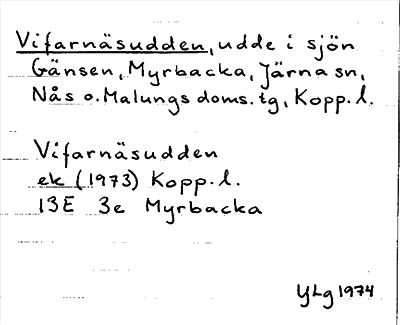 Vifarnäsudden, udde i sjön
Gänsen, Myrbacka, Järna sn,
Nås o. Malungs doms. tg, Kopp. l.
Vifarnäsudden
ek (1973) Kopp. l.
13E 3e Myrbacka
YLg 1974